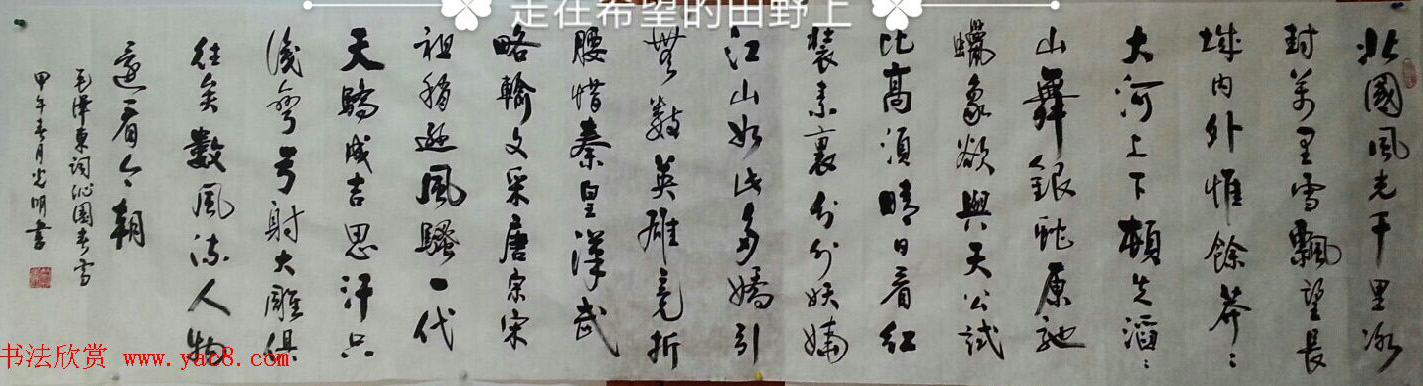 走在希望的田野上
北國風光千里冰
封萬里雪飄望長
城内外惟餘莽〻
大河上下頓失滔〻
山舞銀蛇原馳
蠟象欲與天公試
比高須晴日看紅
裝素裹分外妖嬈
江山如此多嬌引
無數英雄竟折
腰惜秦皇漢武
略輸文采唐宗宋
祖稍遜風騷一代
天驕成吉思汗只
識彎弓射大雕俱
往矣數風流人物
還看今朝
毛澤東詞沁園春雪
甲午春月光明書
书法欣赏 www.yac8.com